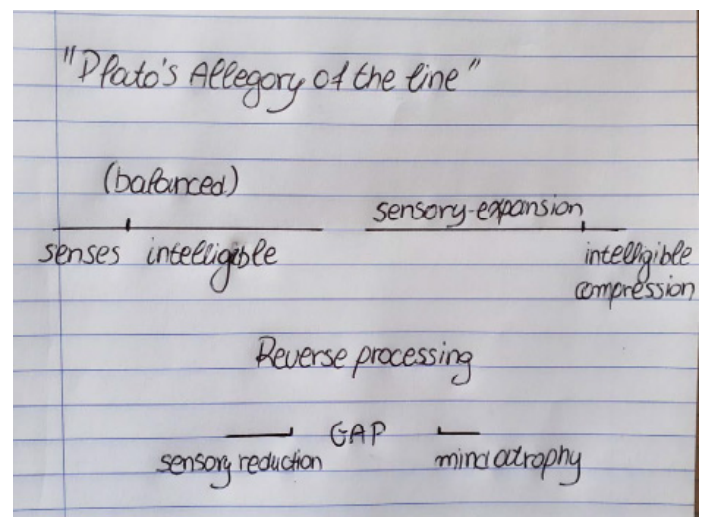 "Plato's Allegory of the line"
(balanced)
senses intelligible
sensory-expansion
intelligible
compression
Reverse processing
GAP
sensory reduction
mind atrophy